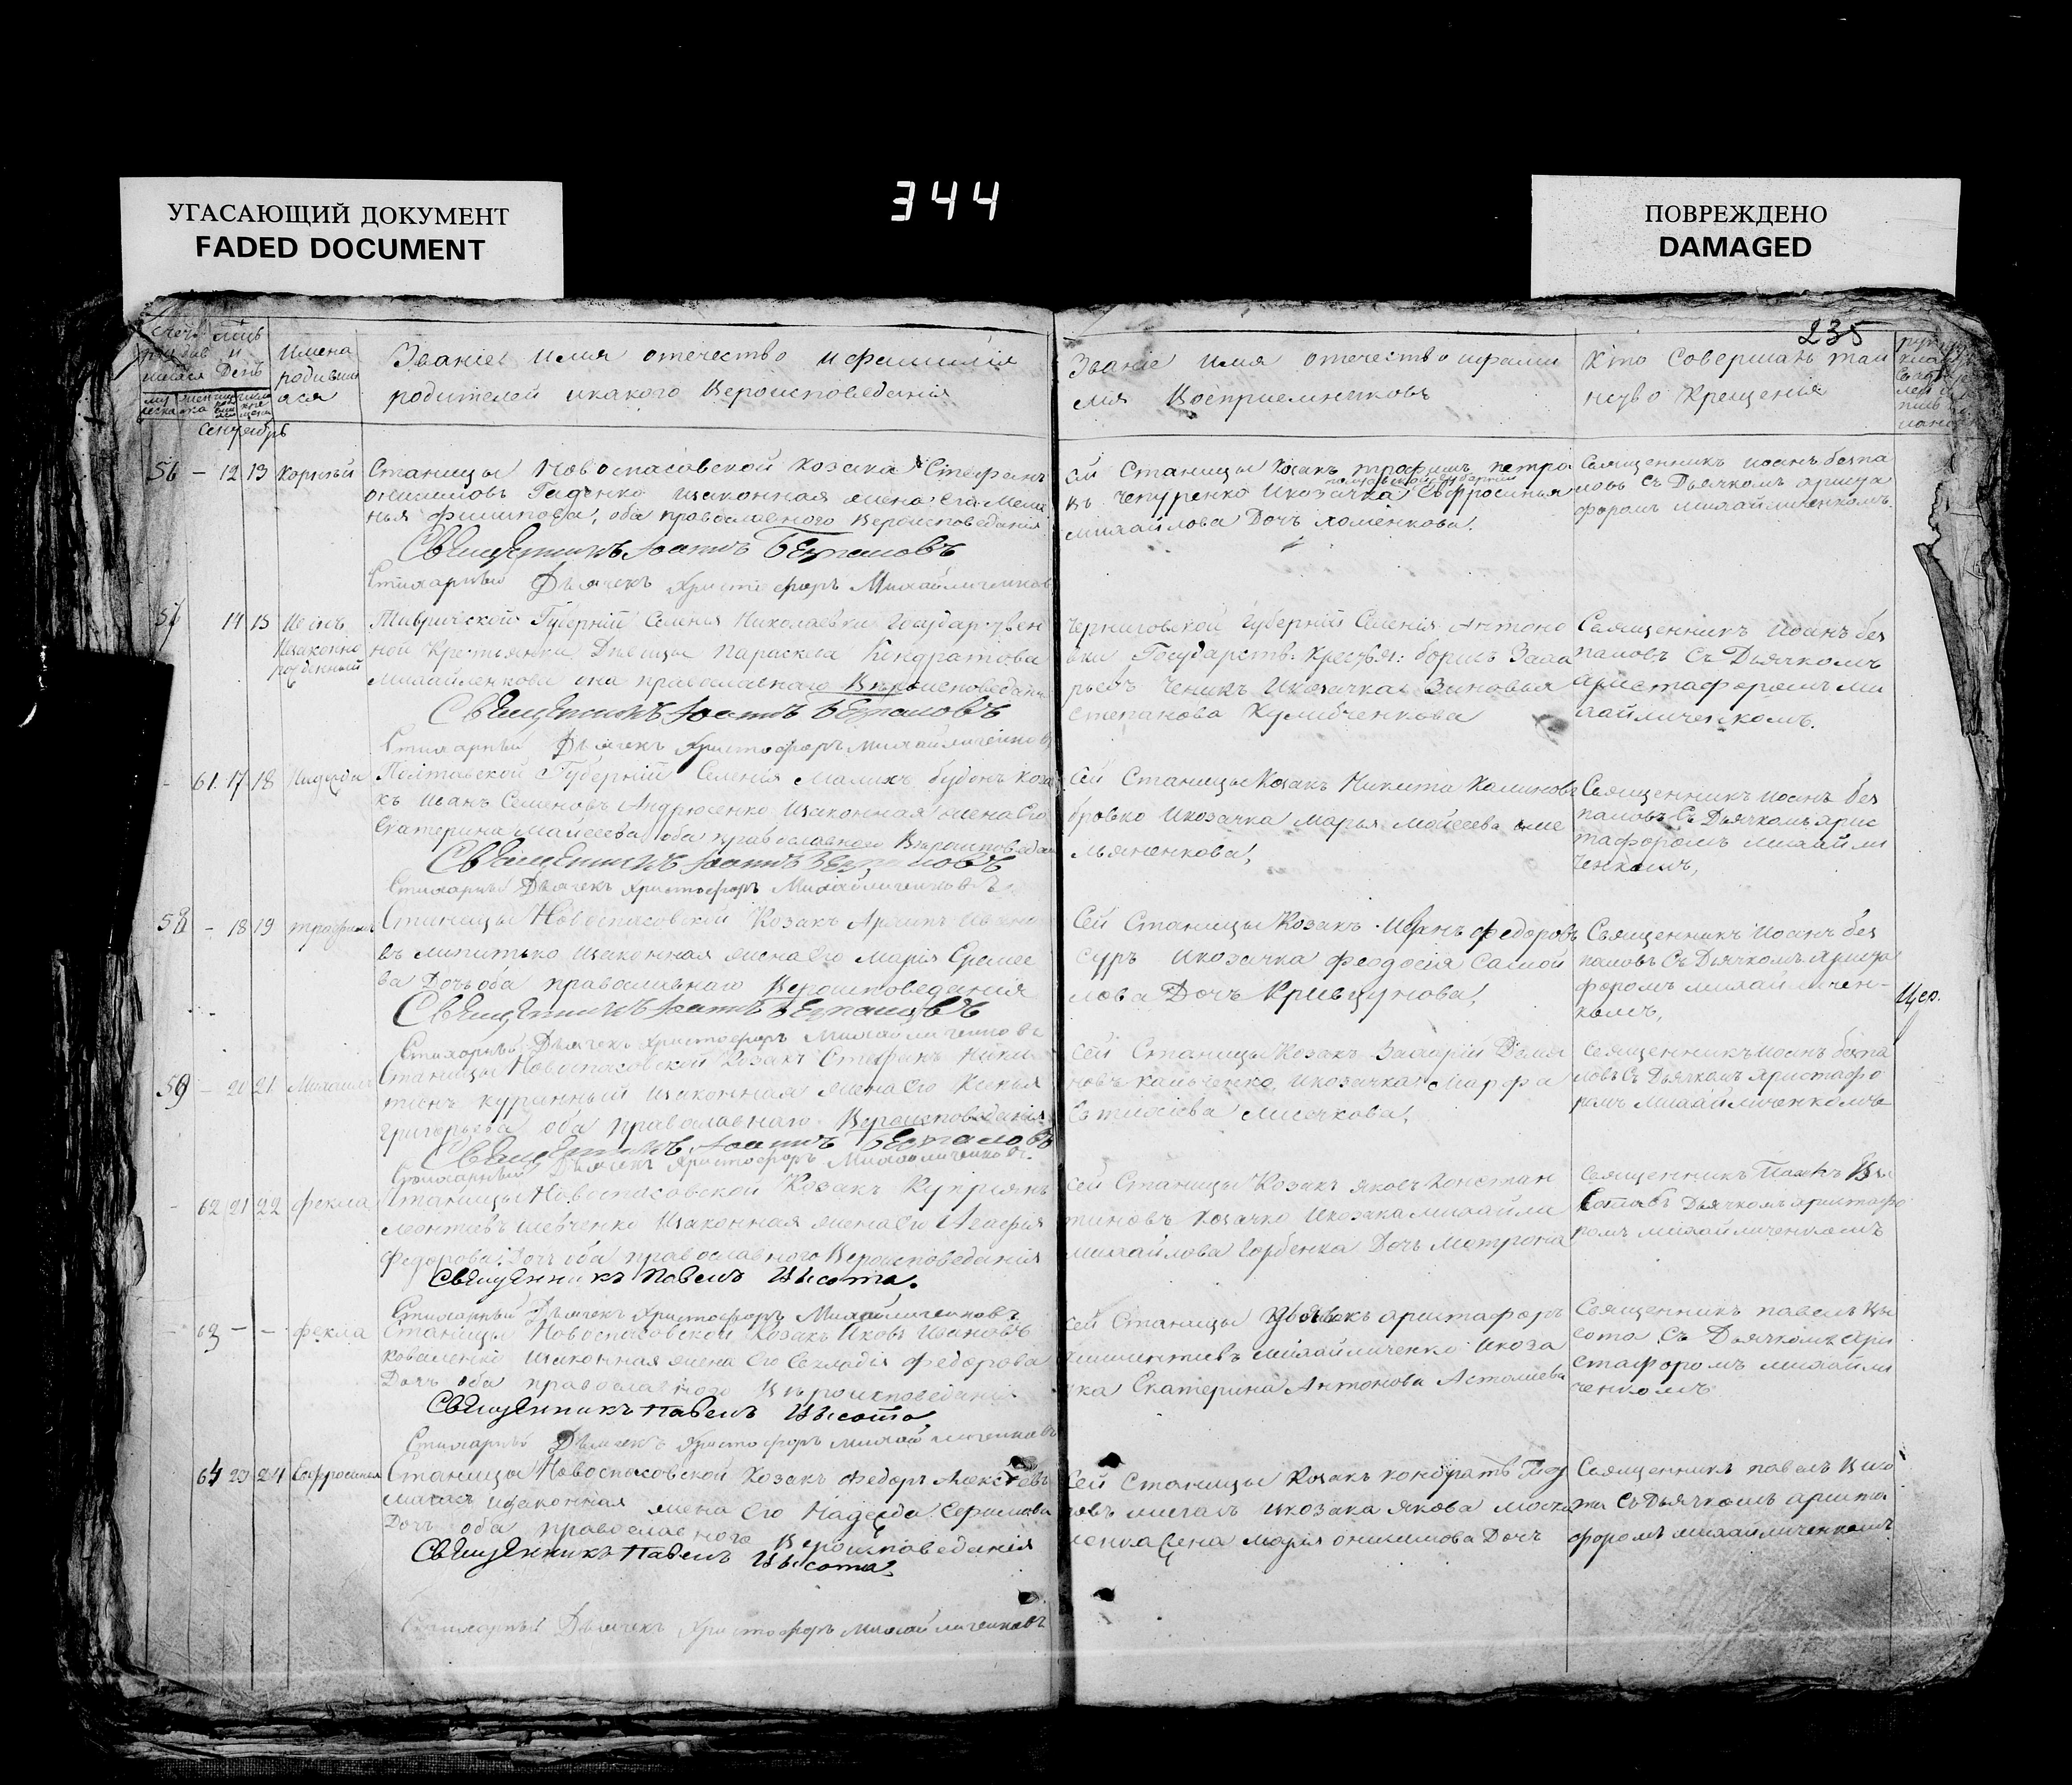 УГАСАЮЩИЙ ДОКУМЕНТ
FADED DOCUMENT
344
ПОВРЕЖДЕНО
DAMAGED
235
Имена
родивши
яся
Званіе Имя отечество и фамилія
родителей икакого Вероисповеданія
Званіе Имя отечество ифами
лия Восприемниковъ
Кто Совершалъ таи
нство Крещенія
Сентябрь
56 – 12 13
Станицы Новоспасовской Козака Стефанъ
онисимовъ Гаденко изаконная жена его
филипова, оба православнаго Вероисповеданія
Священникъ Іоаннъ Безпаловъ
Стихарный Дьячекъ Христофоръ Михайличенковъ
Станицы Козакъ трофимъ петро
въ чепуренко Икозачка Ефросинья
михайлова Дочь хоменкова,
Священникъ иоанъ безпа
ловъ съ Дьячкомъ христа
форомъ михайличенкомъ.
57 14 15
Незаконно
рожденный
Таврической Губерніи Селенія Николаевки Государствен
ной Крестьянки Девицы Параскева Кондратова
михайленкова она православнаго Вероисповедані
Священникъ Іоаннъ Безпаловъ
Стихарный Дьячекъ Христофоръ Михайличенковъ
Черниговской Губерніи Селенія Антоно
вки Государств: Крестья: борисъ Заха
рьевъ Ченикъ Икозачка Зиновья
степанова Кулибченкова
Священникъ Иоанъ без
паловъ Съ Дьячкомъ
христафоромъ ми
хайличенкомъ.
- 61 17 18
Полтавской Губерніи Селенія Малихъ будокъ коза
къ иванъ Семеновъ Андрюсенко Изаконная жена его
Екатерина Мойсеева оба православнаго Вероисповедан
Священникъ Іоаннъ Безпаловъ
Стихарный Дьячекъ Христофоръ Михайличенковъ
Сей Станицы Козакъ Никита Калинов
бровко Икозачка Марья Мойсеева еме
льяненкова,
Священникъ иоанъ без
паловъ Съ Дьячкомъ хрис
тафоромъ михайли
ченкомъ,
58 - 18 19 трофимъ
Станицы Новоспасовской Козакъ Архипъ Ивано
въ микитько изаконная жена его Марія Еремее
ва Дочь оба православнаго Вероисповеданія
Священникъ Іоаннъ Безпаловъ
Стихарный Дьячекъ Христофоръ Михайличенковъ
Сей Станицы Козакъ Иванъ федоровъ
суръ Икозачка феодосія Самой
лова Дочь Кривцунова,
Священникъ Иоанъ без
паловъ Съ Дьячкомъ христа
форомъ михайличен-
комъ,
59 – 20 21 Михаилъ
Станицы Новоспасовской Козакъ Стефанъ Ники
тинъ куринный изаконная жена его Ксенья
григорьева оба православнаго Вероисповеданія
Священникъ Іоаннъ Безпаловъ
Стихарный Дьячекъ Христофоръ Михайличенковъ.
Сей Станицы Козакъ Захарій Деми
новъ Икозачка Марфа
лисечкова,
Священникъ Иоанъ безпа
ловъ Съ Дьячкомъ христафо
ромъ михайличенкомъ
- 62 21 22 фекла
Станицы Новоспасовской Козакъ Купріянъ
леонтиевъ шевченко изаконная жена его Агафія
федорова: Дочь оба православнаго Вероисповеданія
Священникъ Павелъ Высота.
Стихарный Дьячекъ Христофоръ Михайличенковъ
Сей Станицы Козакъ яковъ констан
тиновъ Козачко Икозака михайли
михайлова Горбенка Дочь Матрона
Священникъ
Съ Дьячкомъ христафо
ромъ михайличенкомъ
- 63 - - фекла
Станицы Новоспасовской Козакъ Яковъ Ивановъ
коваленко изаконная жена его федорова
Дочь оба православнаго Вероисповеданія
Священникъ Павелъ Высота
Стихарный Дьячекъ Христофоръ Михайличенковъ
Сей Станицы христафоръ
михайличенко Икоза
чка Екатерина Антонова
Священникъ павелъ Вы
сота Съ Дьячкомъ хри
стафоромъ михайли
ченкомъ
64 23 24 Евфросинія
Станицы Новоспасовской Козакъ Федоръ Алексеевъ
изаконная жена его Надежда Ефимова
Дочь оба православнаго Вероисповеданія
Священникъ Павелъ Высота.
Стихарный Дьячекъ Христофоръ Михайличенковъ
Сей Станицы Козакъ кондратъ
икозака якова
жена марія онисимова Дочь
Священникъ павелъ Высо
та Съ Дьячкомъ христа
форомъ михайличенкомъ